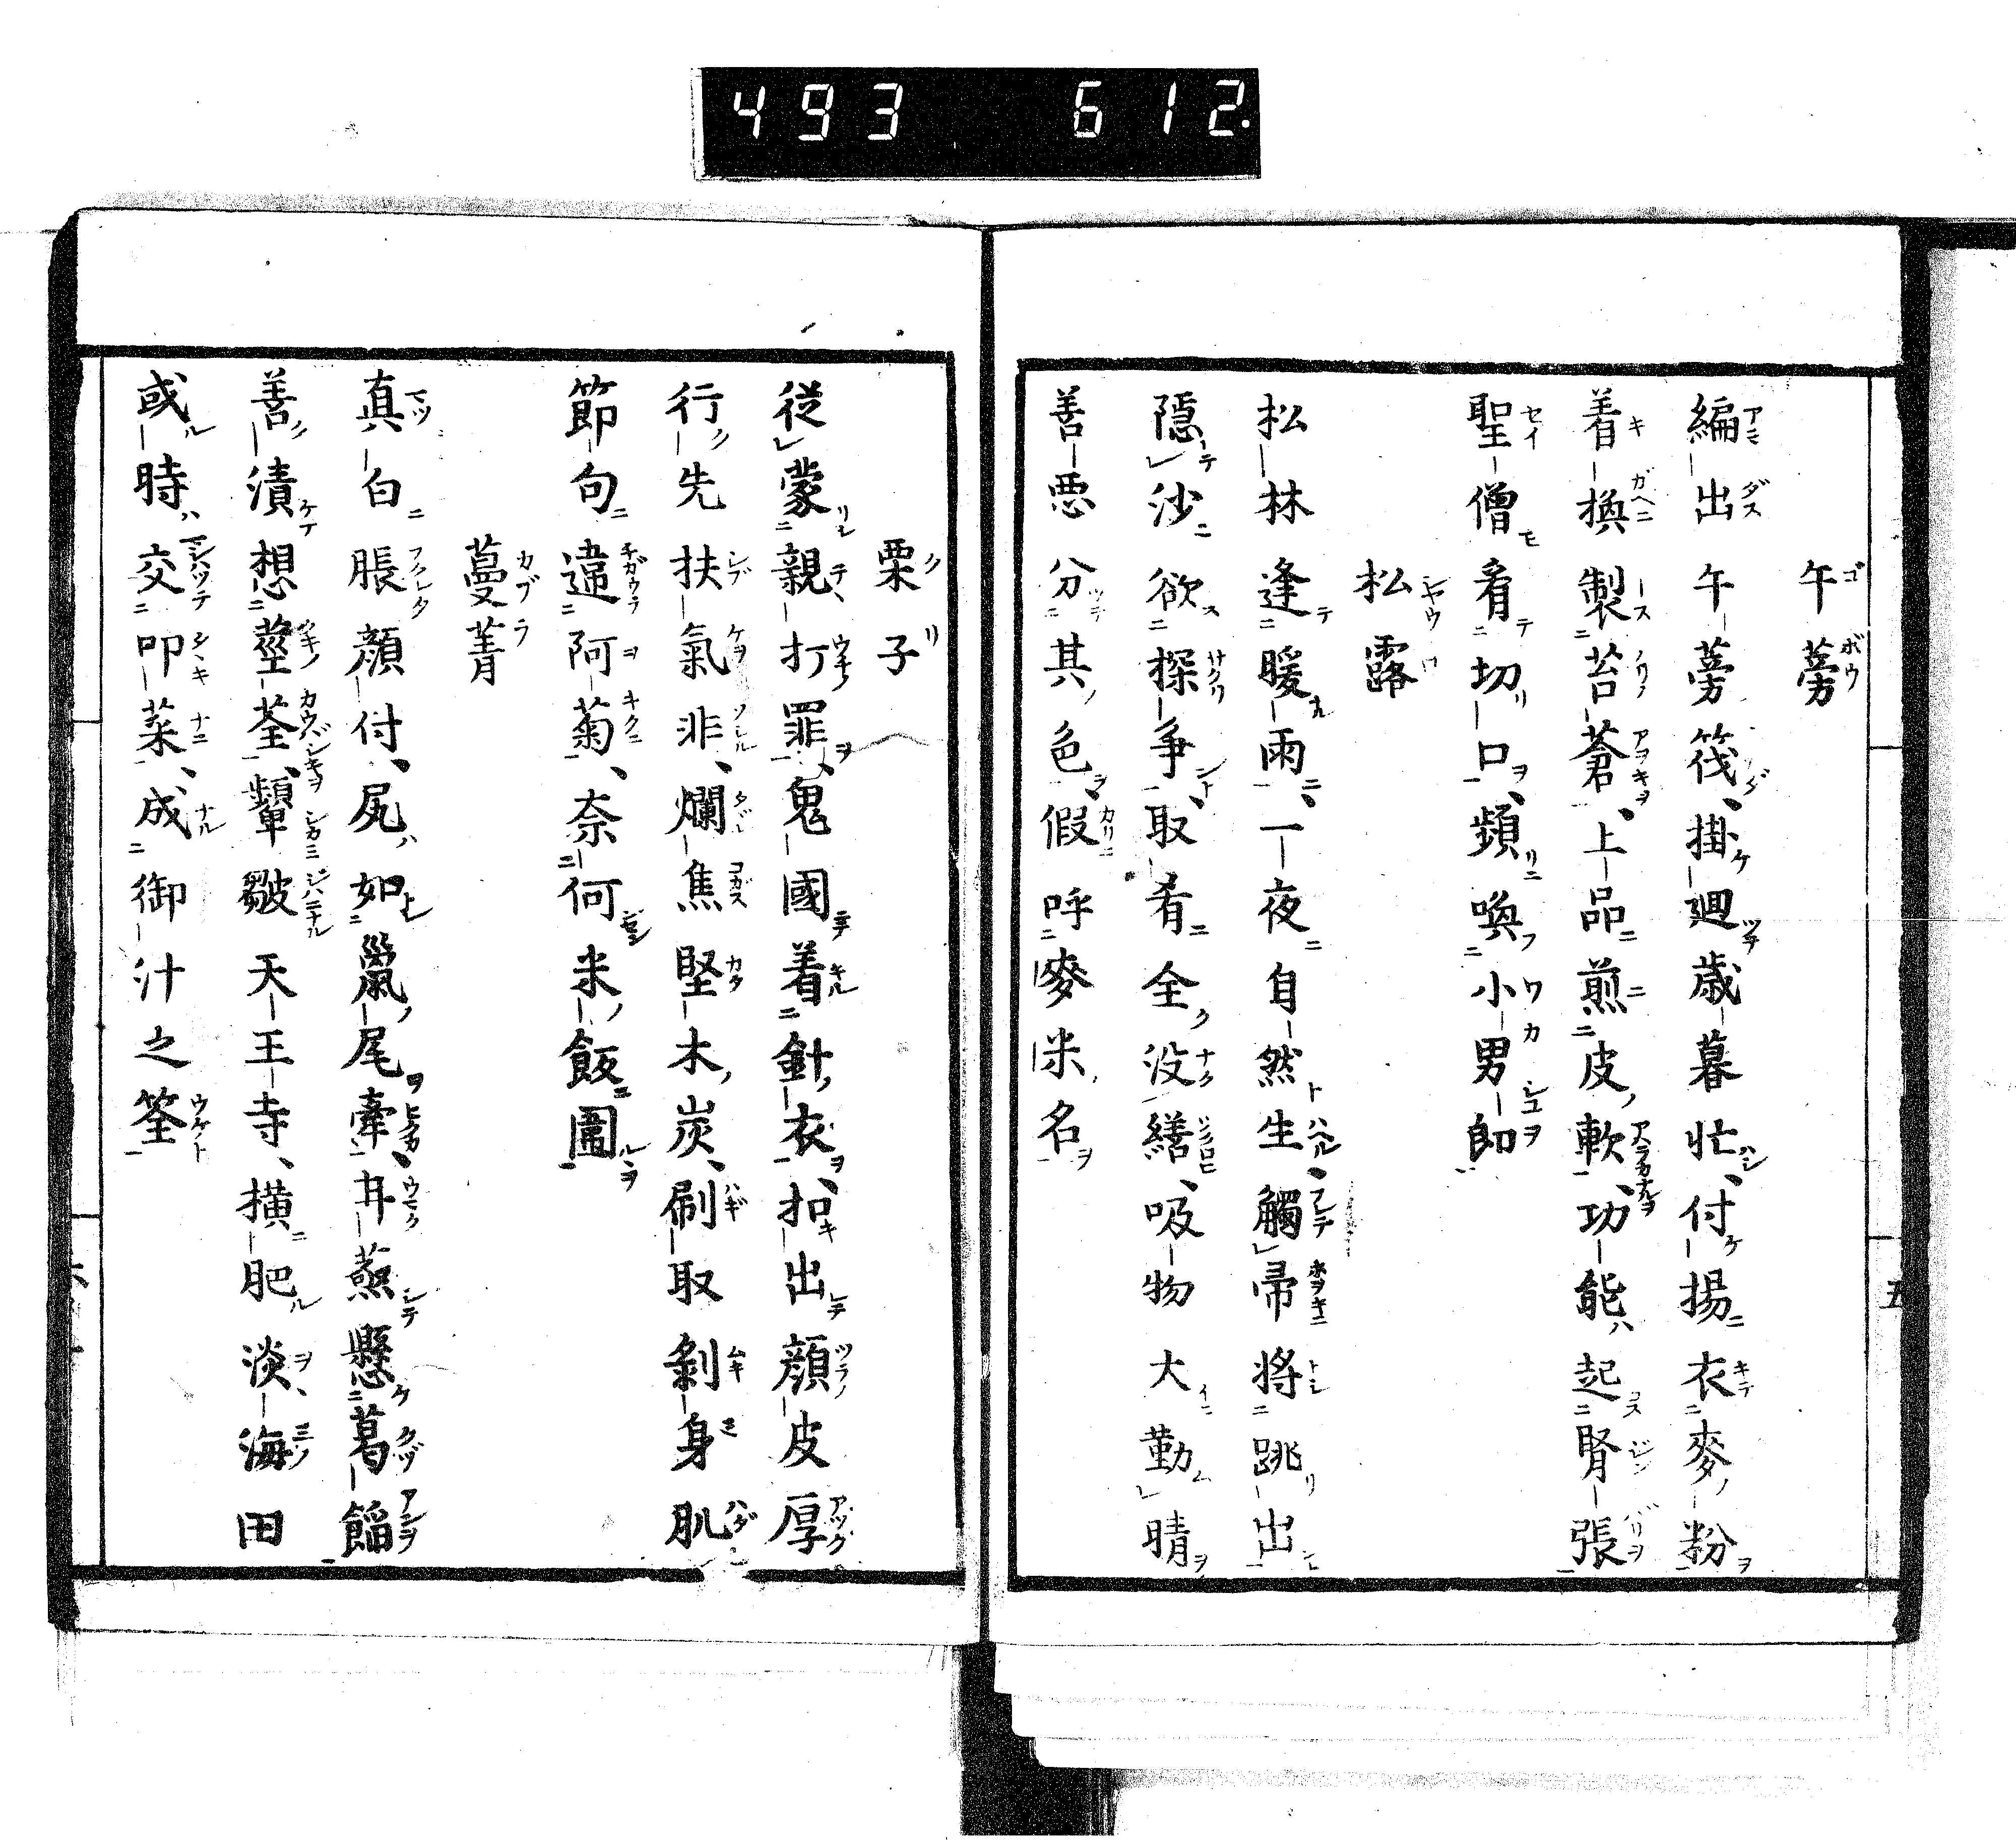 493 612.
午蒡
編出午蒡筏掛廻歳暮忙付揚衣麥粉
着換製苔蒼上品煎皮軟功能起腎張
聖僧肴切口頻喚小男郎
松露
松林逢暖雨一夜自然生觸帚將跳出
隠沙欲探争取肴全没繕吸物大勤晴
善悪分其色假呼麥米名
五
栗子
従蒙親打罪鬼國着針衣扣出顔皮厚
行先扶氣非爛焦堅木炭刷取剝身肌
節句違阿菊奈何米飯圖
蔓菁
真白脹顔付尻如鼠尾牽丼蒸懸葛餡
善漬想莖荃顰皺天王寺横肥淡海田
或時交叩菜成御汁之筌
六